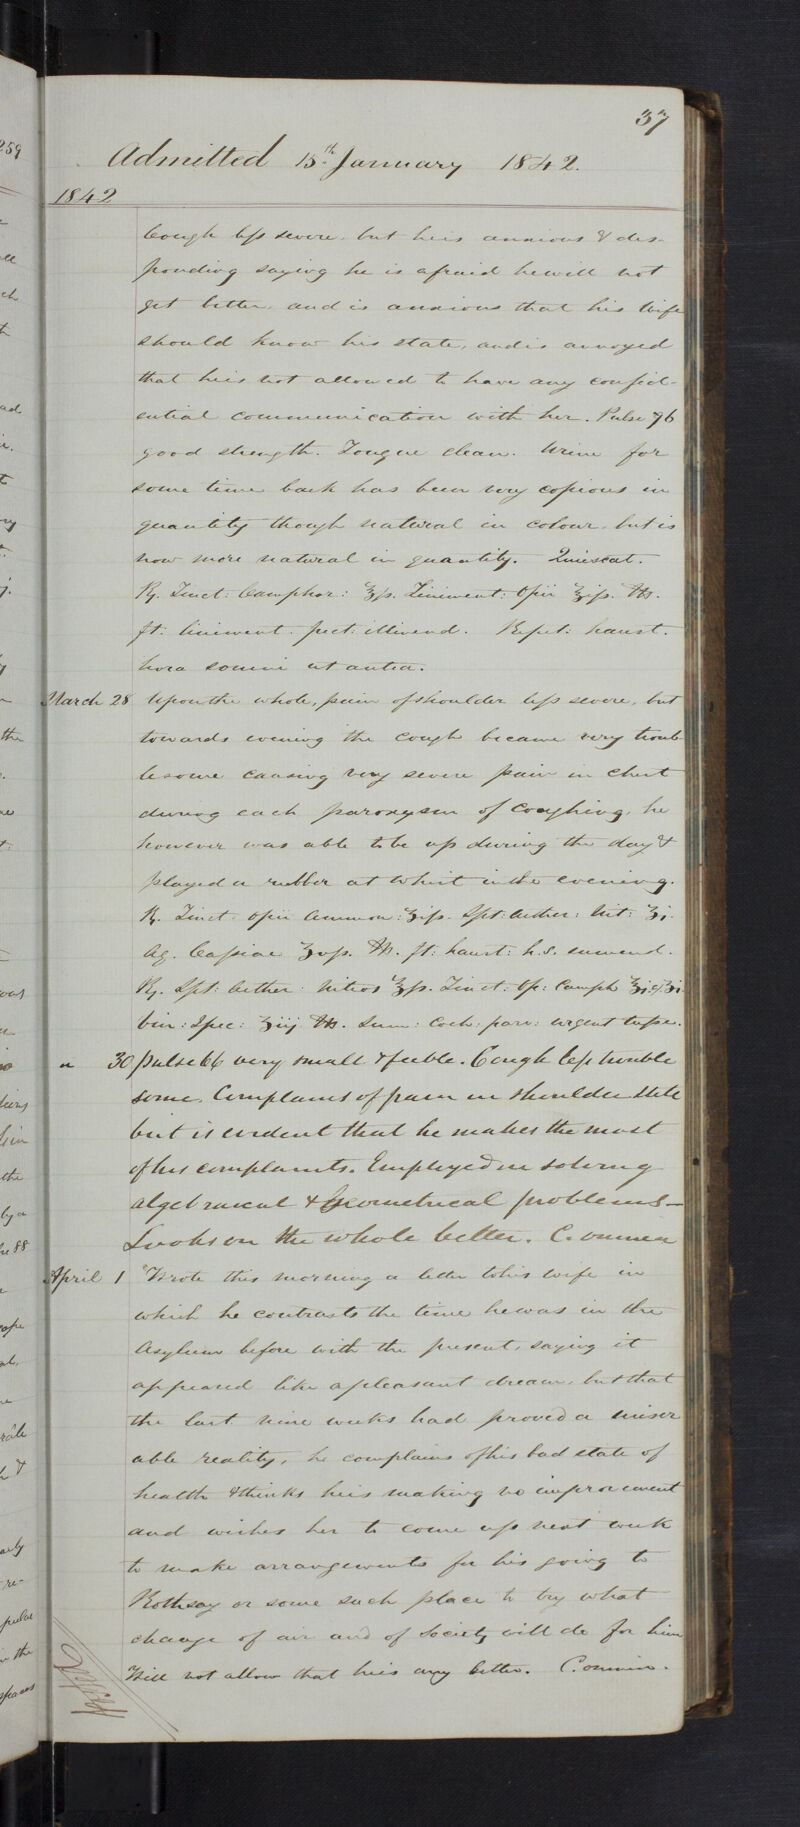 37
Admitted 15th January 1842.
1842
Cough less severe, but he is anxious & des-
ponding saying he is afraid he will not
get better, and is anxious that his wife
should know his state, and is annoyed
that he is not allowed to have any confid-
ential communication with her. Pulse 76
good strength. Tongue clean. Urine for
some time back has been very copious in
quantity though natural in colour, but is
now more natural in quantity. Quiescat.
Rx. Tinct: Camphor: ʒſs. Liniment: Opii ʒiſs. M.
ft: liniment: pect: illinend. Repet: haust.
hora somni ut antea.
March 28 Upon the whole, pain of shoulder less severe, but
towards evening the cough became very troub
lesome causing very severe pain in chest
during each paroxysm of coughing, he
however was able to be up during the day &
played a rubber at whist in the evening.
Rx. Tinct: Opii Ammon: ʒiſs. Spt: Aether: Nit: ʒi.
Aq. Cassiae ʒvſs. M. ft: haust: h.s. sumend.
Rx. Spt: Aether: Nitros ʒſs. Tinct: Op: Camph
Vin: Ipec: ʒiij M. Sum: Coch: parv: urgent tusse.
" 30 Pulse 66 very small & feeble. Cough less trouble
some. Complains of pain in shoulder still
but is evident that he makes the most
of his complaints. Employed in solving
algebraical & Geometrical problems—
Looks on the whole better. C. omnia
April 1 Wrote this morning a letter to his wife in
which he contrasts the time he was in the
Asylum before with the present, saying it
appeared like a pleasant dream, but that
the last nine weeks had proved a miser
able reality, he complains of his bad state of
health & thinks he is making no improvement
and wishes her to come up next week
to make arrangements for his going to
Rothsay or some such place to try what
change of air and of Society will do for him
Will not allow that he is any better. C. omnia.